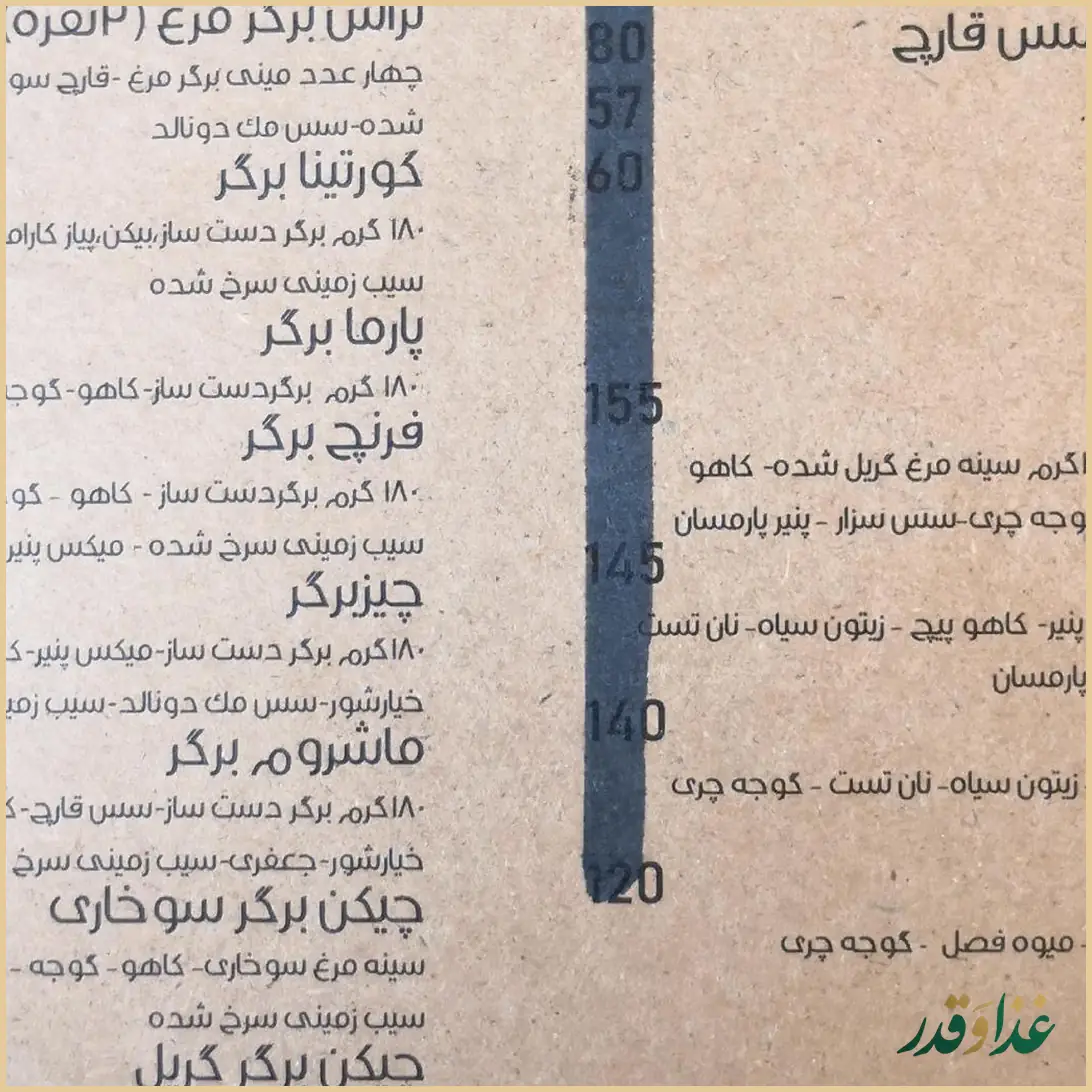 سس قارچ
80
57
60
155
گرم سینه مرغ گریل شده- کاهو
وجه چری-سس سزار - پنیر پارمسان
145
پنیر- کاهو پیچ - زیتون سیاه- نان تست
پارمسان
140
زیتون سیاه- نان تست - گوجه چری
120
- میوه فصل - گوجه چری
تراس برگر مرغ (۲نفره)
چهار عدد مینی برگر مرغ -قارچ سو
شده-سس مك دونالد
گورتینا برگر
۱۸۰ گرم برگر دست ساز،بیکن،پیاز کارام
سیب زمینی سرخ شده
پارما برگر
۱۸۰ گرم برگردست ساز- کاهو- گوجه
فرنچ برگر
۱۸۰ گرم برگردست ساز - کاهو - گو
سیب زمینی سرخ شده - میکس پنیر
چیزبرگر
۱۸۰گرم برگر دست ساز-میکس پنیر-ک
خیارشور-سس مك دونالد-سیب زمی
ماشروم برگر
۱۸۰گرم برگر دست ساز-سس قارچ-ک
خیارشور-جعفری-سیب زمینی سرخ
چیکن برگر سوخاری
سینه مرغ سوخاری- کاهو- گوجه -
سیب زمینی سرخ شده
چیکن برگر گریل
غذا و قدر